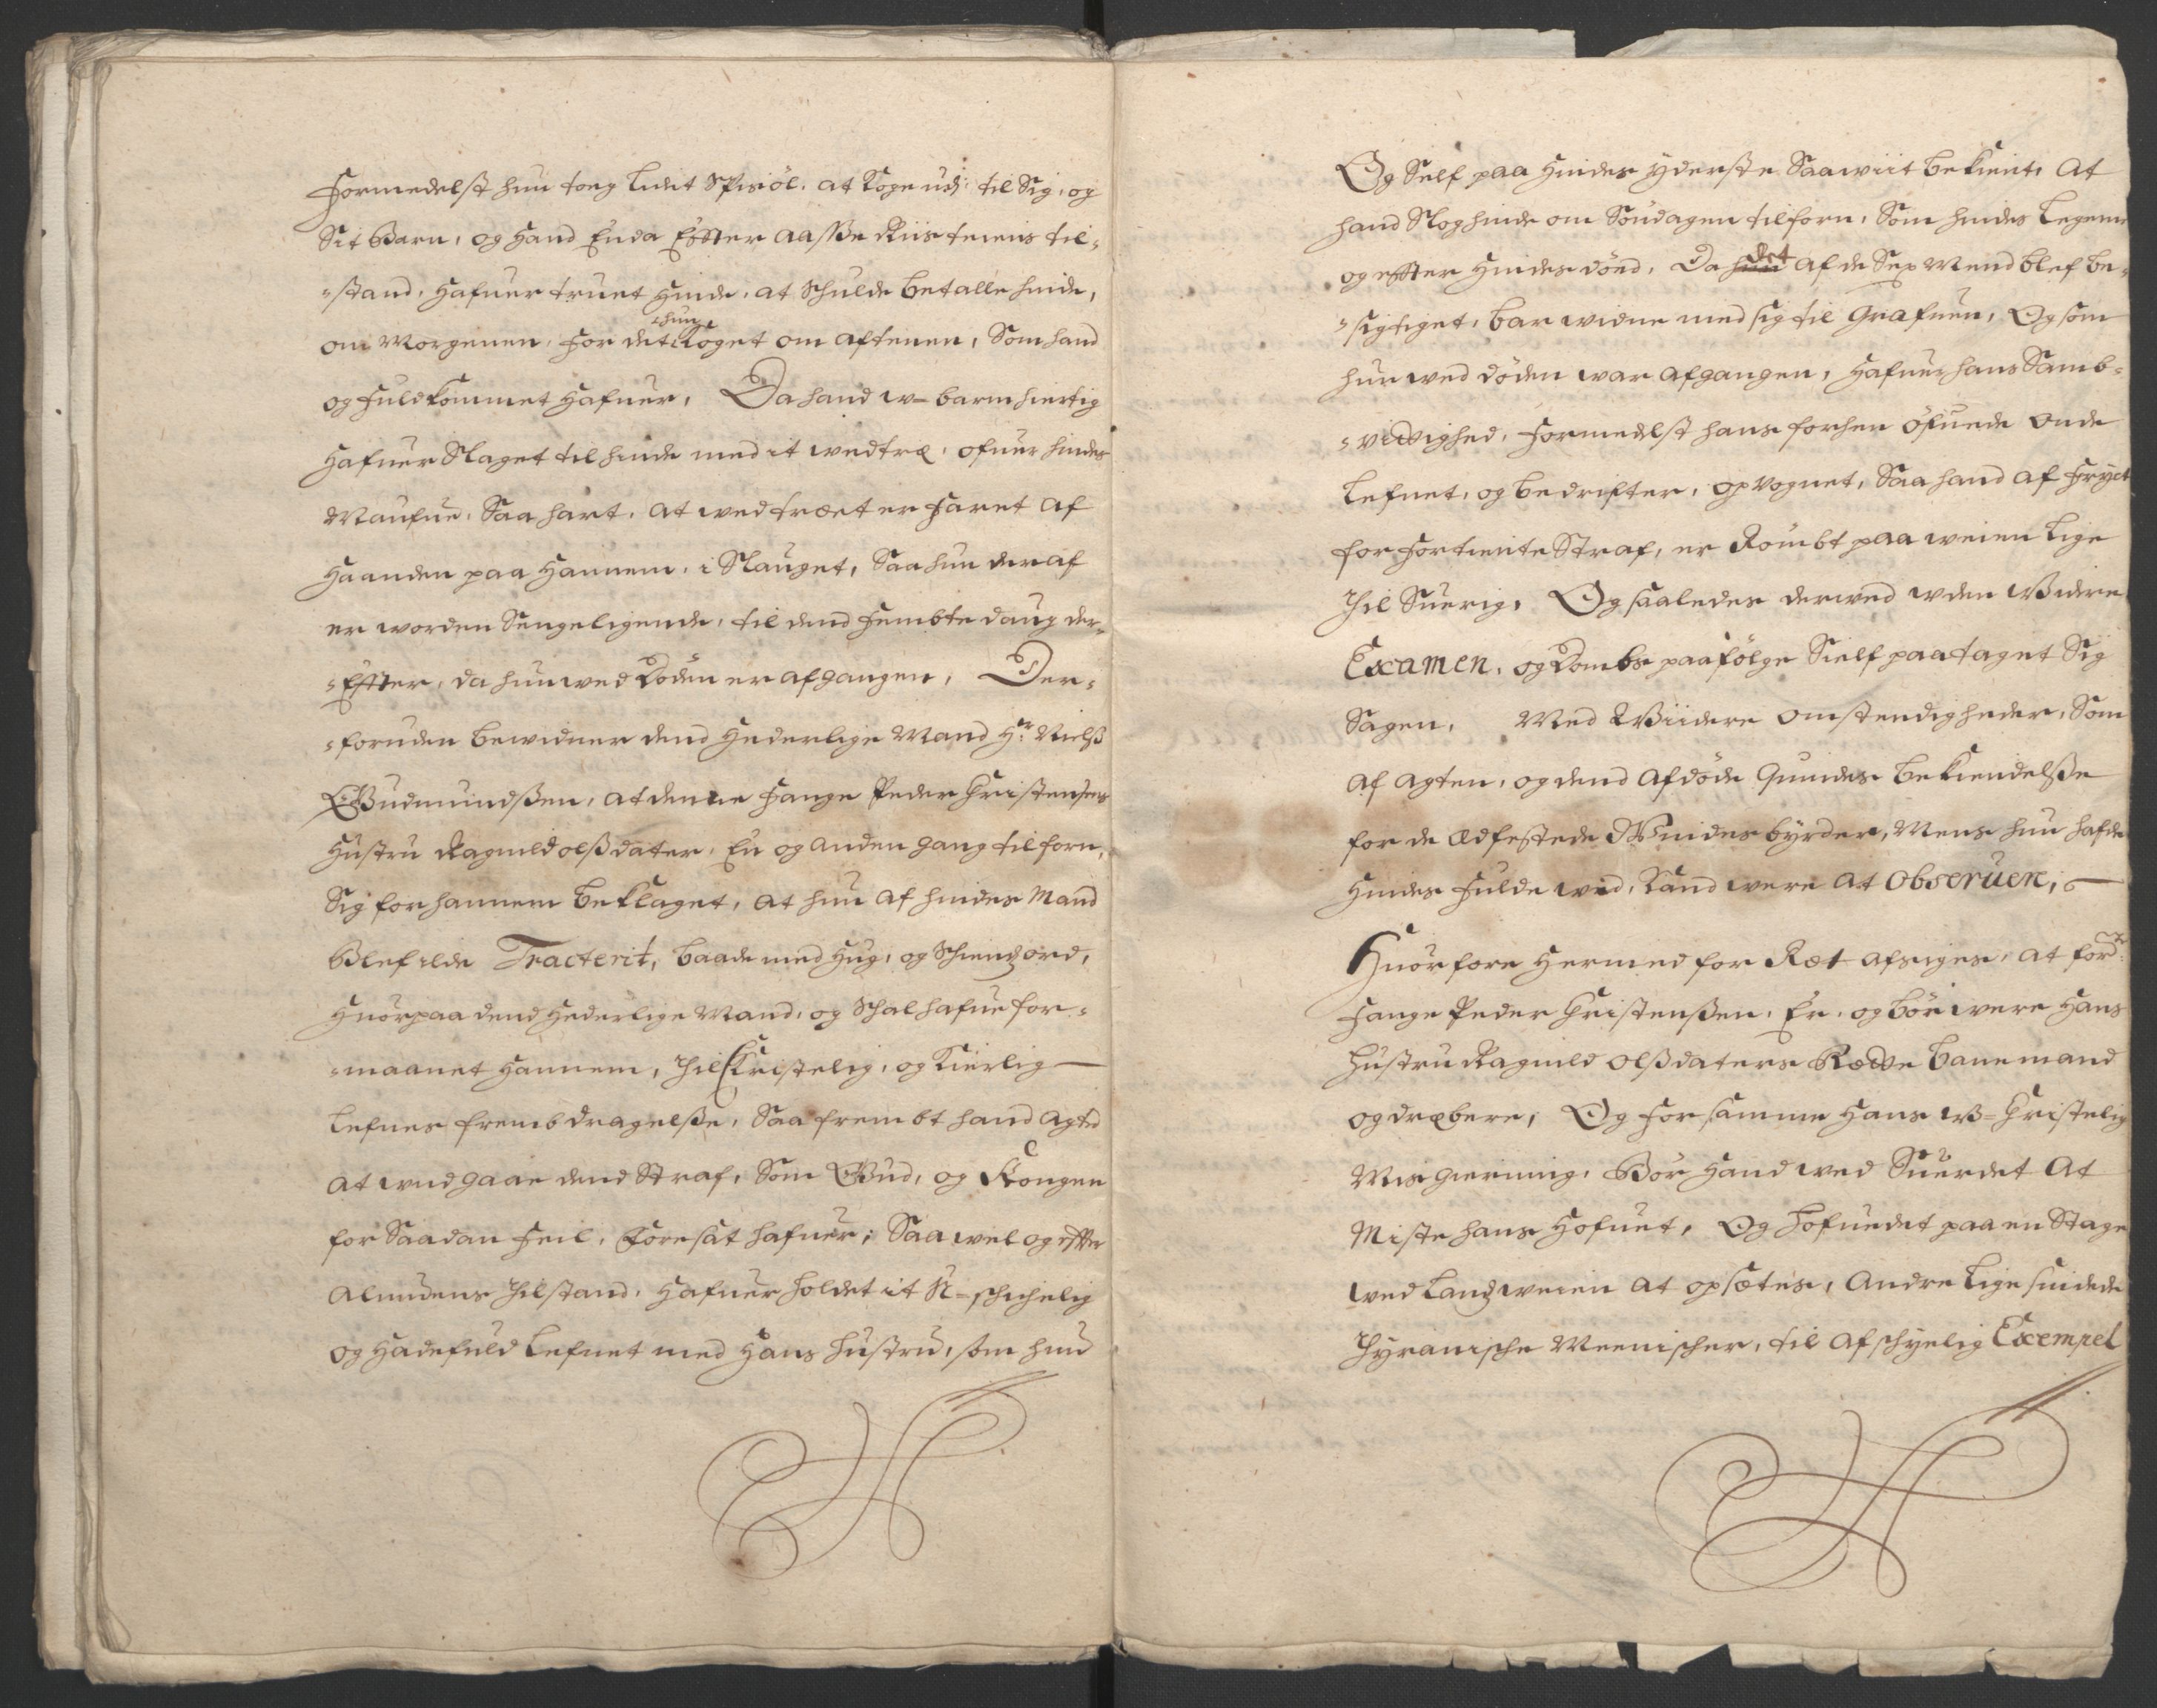 Formedelst hun tog lidet Spisöl, at Koge udj, til Sig, og
Sit Barn, og Hand Enda Effter Aasße Riis teiens til=
=stand, Hafuer truet Hinde, at Schulde betalle hinde,
om Morgenen, for det hun Koget om Aftenen, Som hand
og fuldkommet Hafuer, Da hand w=barmhiertig
Hafuer Slaget til hinde med it wedtræ, ofuer hindes
Maufue, Saa hart, at wedtræet er faret af
Haanden paa Hannem, i Slauget, Saa hun der af
er worden Sengeligende, til dend Fembte daug der=
=Effter, da hun wed Döden er afgangen, Der=
=foruden bewidner dend Hederlige Mand Hr. Nielß
Gudmundßen, at denne Fange Peder Christensens
Hustru Ragnild olßdater, En og anden gang tilforn,
Sig for hannem beklaget, at hun af hindes Mand
Blef ilde Tracterit, baade med Hug, og Schiendzord,
Huorpaa dend Hederlige Mand, og Schal hafue for=
=maanet Hannem, Til Christelig, og Kierlig
Lefnes frembdragelße, Saa frembt hand Agted
at undgaae dend Straf, Som Gud, og Kongen
for Saadan Feil, Foresat hafuer; Saa wel og effter
Almudens Tilstand, Hafuer holdet it U=schichelig
og Hadefuld Lefnet med Hans Hustru, som hun
Og Self paa Hindes yderste Saawiit bekient, At
hand Slog hinde om Söndagen tilforn, Som hindes Legeme
og effter Hindes död, Da hun det af de Sex Mend blef be=
=sigtiget, bar widne med sig til Grafuen, Og som
hun wed döden war afgangen, Hafuer hans Samb=
=vittighed, formedelst hans forhen öfuede Onde
Lefnet, og bedrifter, opVognet, Saa hand af Fryct
for fortiente Straf, er Römbt paa weien lige
Til Suerig, Og saaledes derwed uden Widere
Examen, og Dombs paafölge Sielf paataget Sig
Sagen, Med Wiidere omstendigheder, Som
af Agten, og dend Afdöde Quindes bekiendelße
for de Ædfestede Quindes byrder, Mens hun hafde
Hindes Fulde wid, Kand were at Observere,
Huorfore Hermed for Ræt afsiges, at fordte
Fange Peder Christenßen, Er, og bör were Hans
Hustru Ragnild Olßdaters Rætte banemand
og dræbere, Og for samme Hans W=Christelig
Misgierning, Bör Hand wed Suerdet At
Miste hans Hofuet, Og Hofuedet paa en Stage
wed Landzweien at opsætes, Andre lige sindede
Tyranische Mennischer, til Afschyelig Exempel